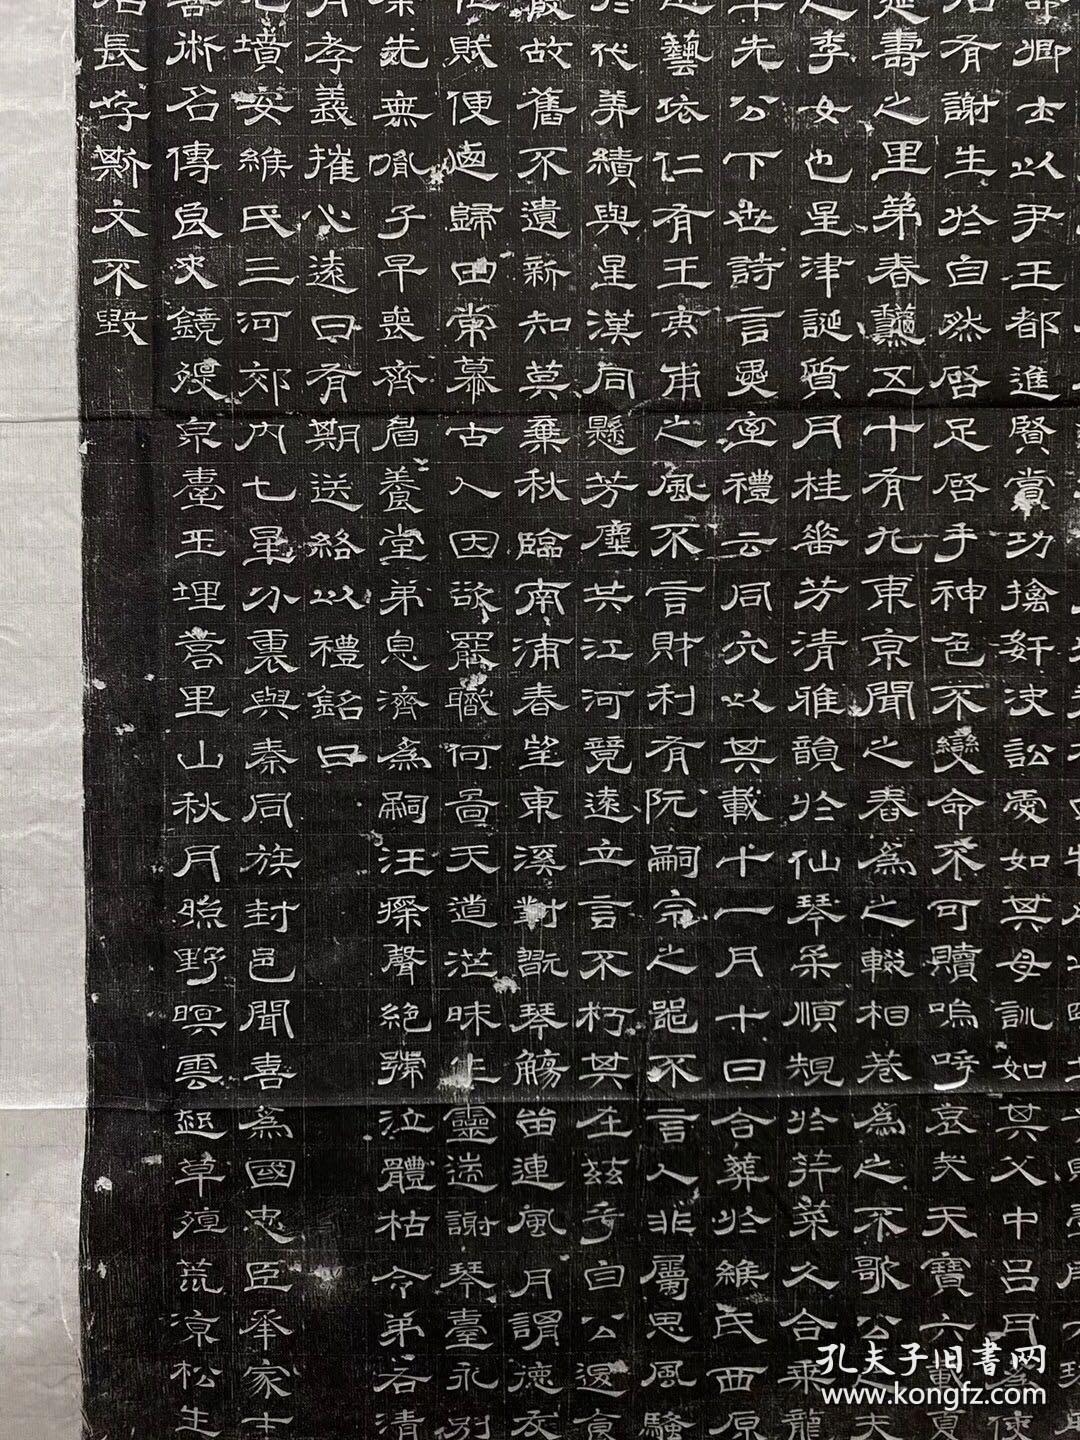 卿士以尹王都進賢賞功擒奸決訟愛如其母訓如其父中呂月為使
石有謝生於自然啓足啓手神色不變命不可贖嗚呼哀哉天寶六載夏
延壽之里第春秋五十有九東京聞之舂為之輟相巷為之不歌公之夫
之季女也星津誕質月桂蕃芳清雅韻於仙琴柔順規於荇菜久合乘龍
年先公下世詩言異室禮云同穴以其載十一月十日合葬於緱氏西原
遊藝依仁有王夷甫之風不言財利有阮嗣宗之器不言人非屬思風騷
於代并績與星漢同懸芳塵共江河競遠立言不朽其在茲乎自公退食
嚴故舊不遺新知莫棄秋臨南浦春望東溪對酌琴觴留連風月謂德友
位賦便過歸田常慕古人因欲罷職何啚天道茫昧生靈遄謝琴臺永別
深先無胤子早喪齊眉養堂弟息濟為嗣汪瘵聲絕孺泣體枯令弟名清
月孝義摧心遠日有期送終以禮銘曰
地墳安緱氏三河郊內七裏與秦同族封邑聞喜為國忠臣承家士
善術名傳良史鏡泉臺玉埋蒿里山秋月照野暝雲起草殯荒涼松生
石長存斯文不毀
孔夫子旧書网
www.kongfz.com